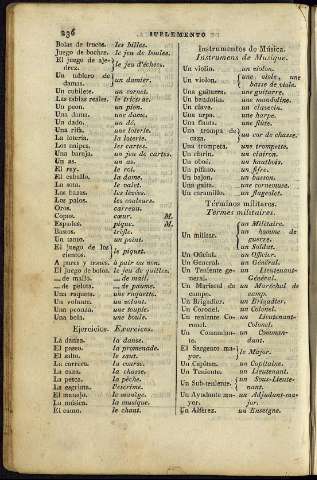 236
SUPLEMENTO
Bolas de trucos. les billes.
Juego de bochas. le jeu de boules.
El juego de aje-
drez. } le jeu d'échecs.
Un tablero de
damas. } un damier.
Un cubilete. un cornet.
Las tablas reales. le trictrac.
Un peon. un pion.
Una dama. une dame.
Un dado. un dé.
Una rifa. une loterie.
La lotería. la loterie.
Los naipes. les cartes.
Una baraja. un jeu de cartes.
Un as. un as.
El rey. le roi.
El caballo. la dame.
La sota. le valet.
Las bazas. les levées.
Los palos. les couleurs.
Oros. carreau.
Copas. cœur. M.
Espadas. pique. M.
Bastos. trèfle.
Un tanto. un point.
El juego de los
cientos. } le piquet.
A pares y nones. à pair ou non.
El juego de bolos. le jeu de quilles.
... de mallo. ... de mail.
... de pelota. ... de paume.
Una raqueta. une raquette.
Un volante. un volant.
Una peonza. une toupie.
Una bola. une boule.
Ejercicios. Exercices.
La danza. la danse.
El paseo. la promenade.
El salto. le saut.
La carrera. la course.
La caza. la chasse.
La pesca. la pêche.
La esgrima. l'escrime.
El manejo. le manége.
La música. la musique.
El canto. le chant.
Instrumentos de Música.
Instrumens de Musique.
Un violin. un violon.
Un violon. { une viole, une
basse de viole.
Una guitarra. une guitarre.
Un bandolin. une mandoline.
Un clave. un clavecin.
Una arpa. une harpe.
Una flauta. une flûte.
Una trompa de
caza. } un cor de chasse.
Una trompeta. une trompette.
Un clarin. un clairon.
Un oboé. un hautbois.
Un pífano. un fifre.
Un bajon. un basson.
Una gaita. une musette.
Un caramillo. un flageolet.
Términos militares.
Termes militaires.
Un militar. { un Militaire.
un homme de
guerre.
un Soldat.
Un Oficial. un Officier.
Un General. un Général.
Un Teniente ge-
neral. } un Lieutenant-
Général.
Un Mariscal de
campo. } un Maréchal de
camp.
Un Brigadier. un Brigadier.
Un Coronel. un Colonel.
Un teniente Co-
ronel. } un Lieutenant-
Colonel.
Un Comandan-
te. } un Comman-
dant.
El Sargento ma-
yor. } le Major.
Un Capitan. un Capitaine.
Un Teniente. un Lieutenant.
Un Sub-teniente. { un Sous-Lieute-
nant.
Un Ayudante ma-
yor. } un Adjudant-ma-
jor.
Un Alférez. un Enseigne.